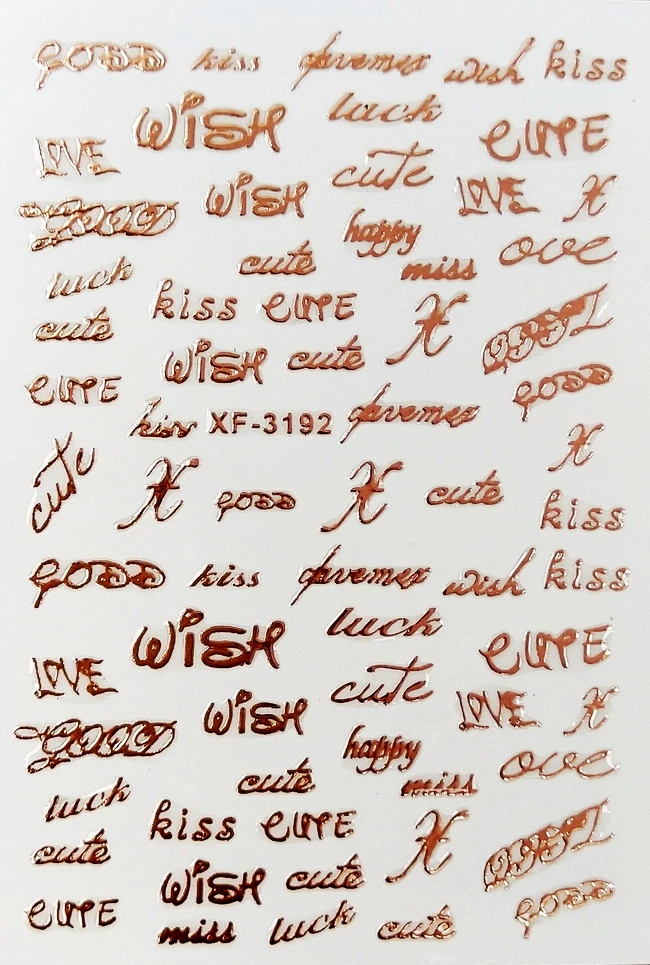 GOOD kiss wish kiss
WISH luck CUTE
LOVE cute
WISH LOVE X
GOOD happy ove
cute miss
luck
kiss CUTE X
cute
WISH cute
CUTE GOOD
kiss XF-3192
X
cute X GOOD X cute
kiss
GOOD kiss wish kiss
WISH luck CUTE
LOVE cute
WISH LOVE X
GOOD happy ove
cute miss
luck
kiss CUTE X
cute
WISH cute
CUTE GOOD
miss luck cute